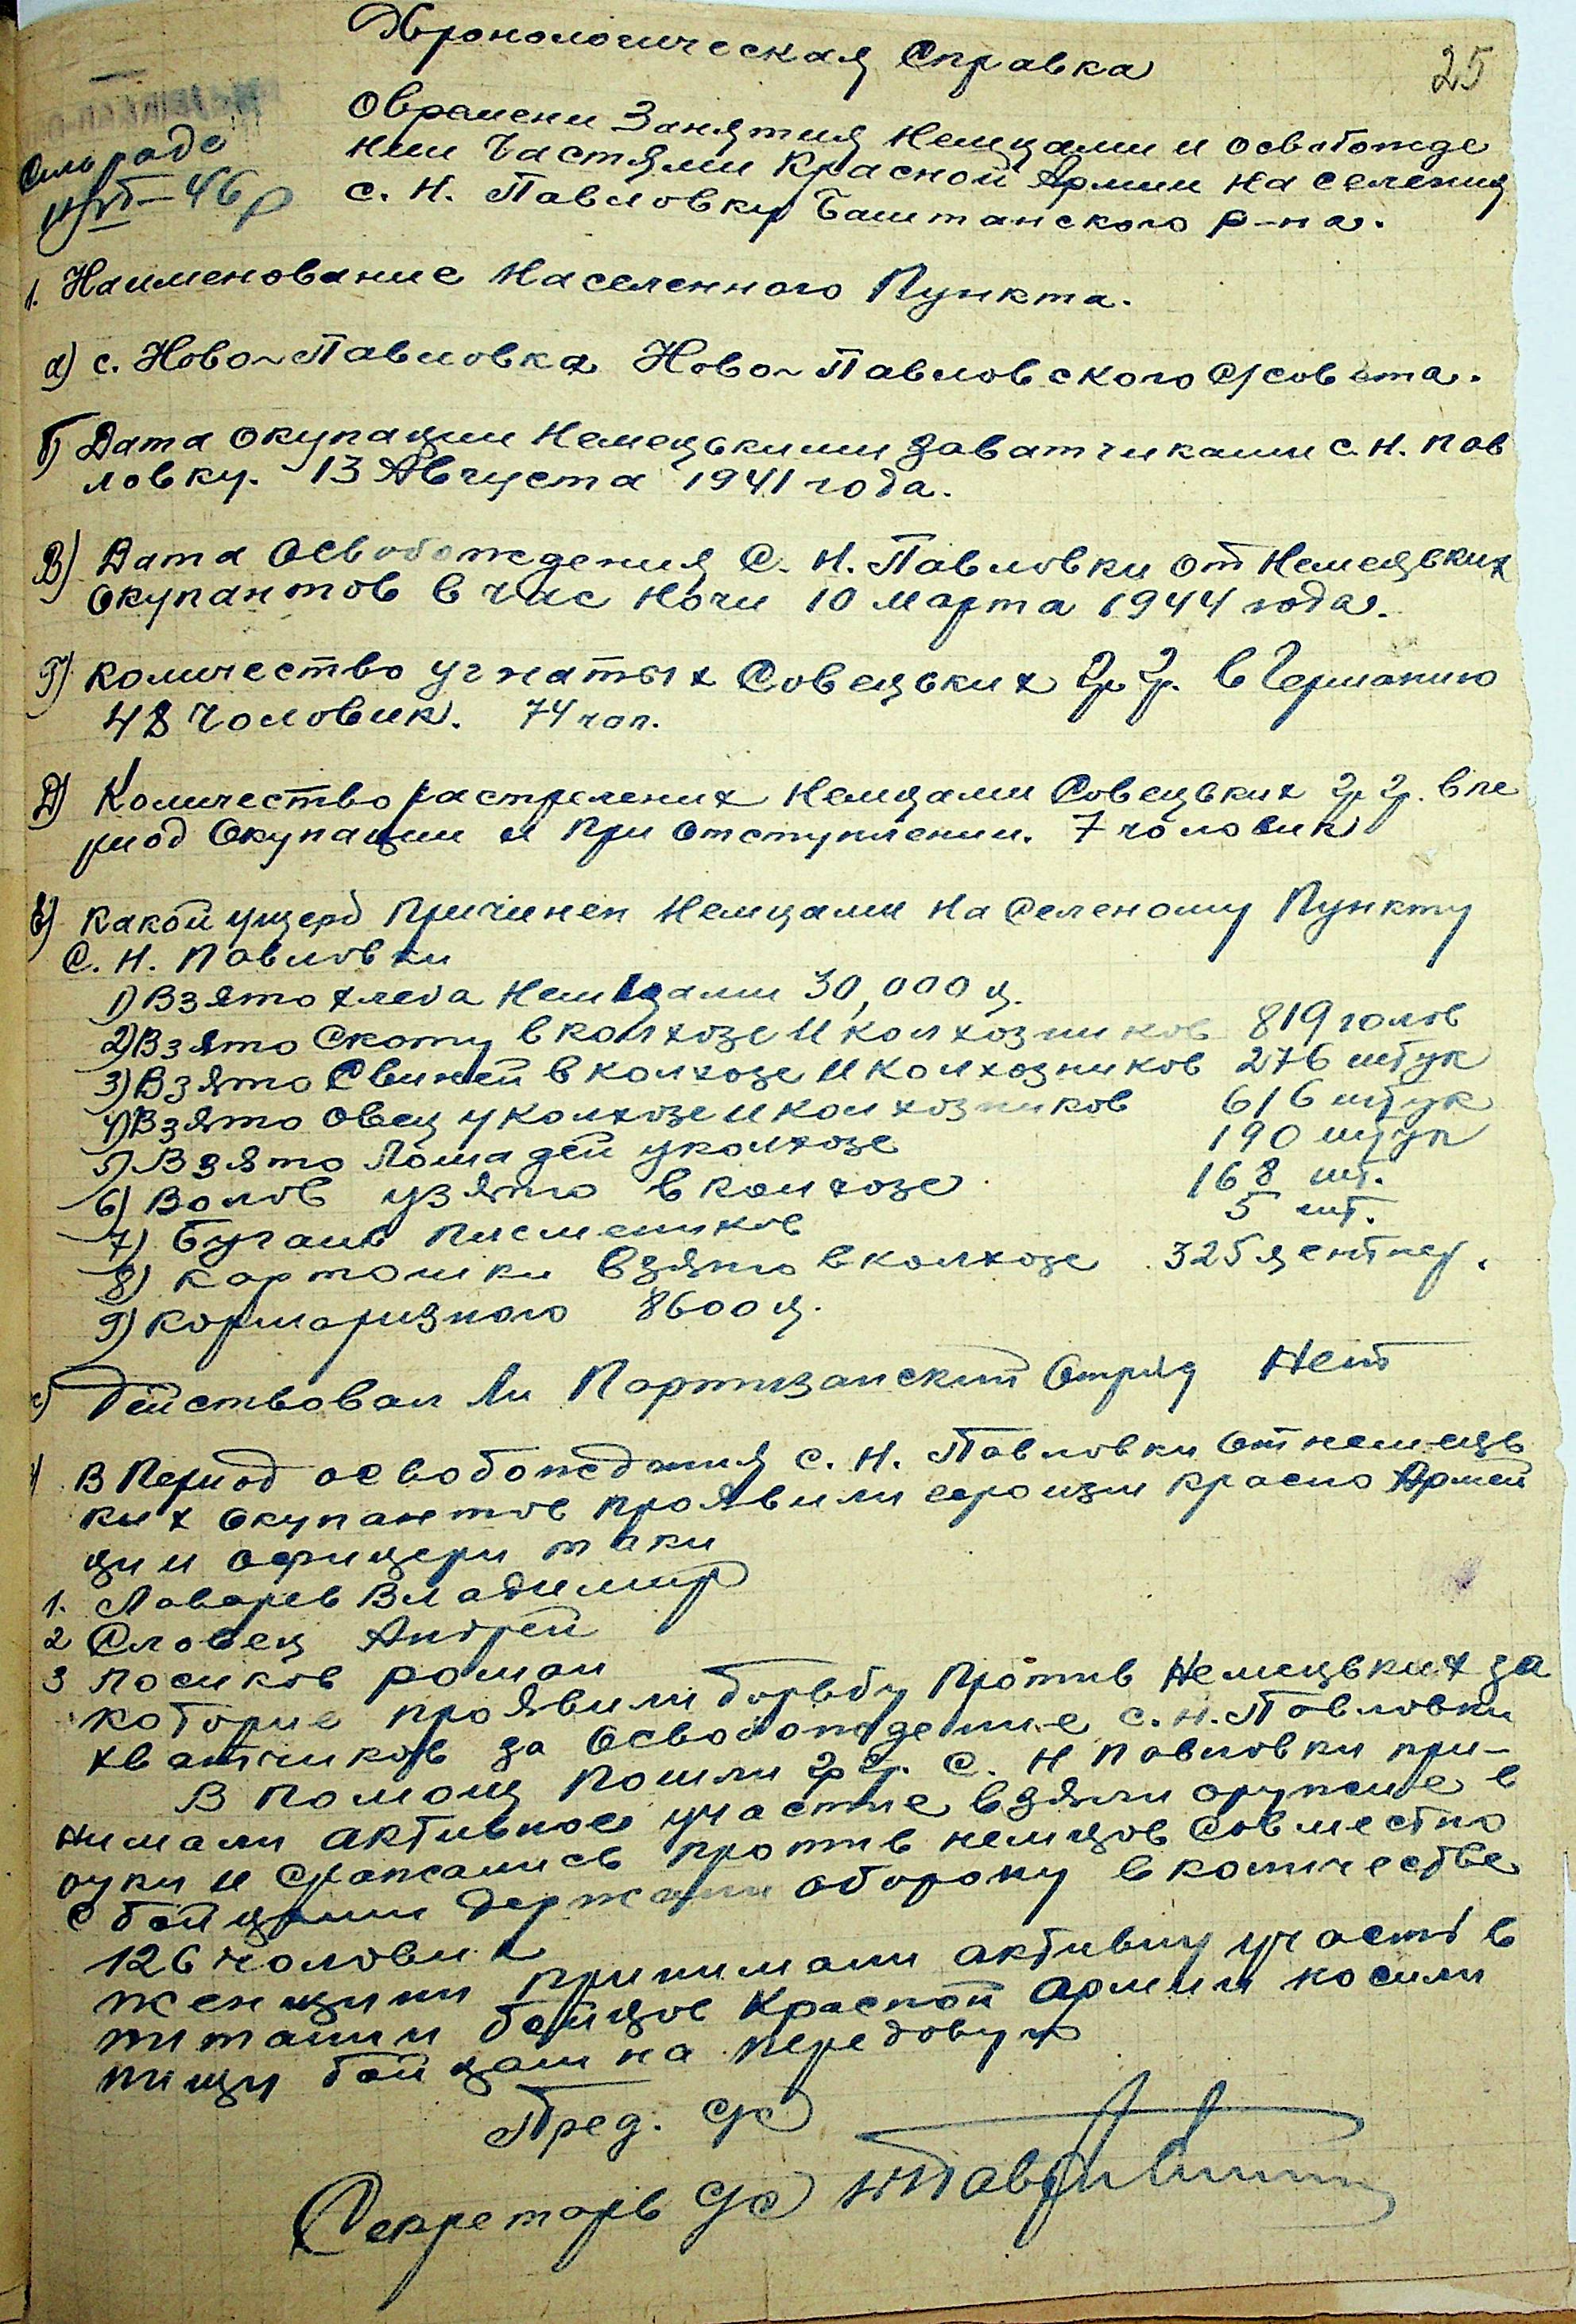 Хронологическая Справка
25
О времени Занятия Немцами и освобожде
нии Частями Красной Армии населения
с. Н. Павловку Баштанского р-на.
1. Наименование Населенного Пункта.
а) с. Ново-Павловка Ново-Павловского с/совета.
б) Дата Окупации Немецькими Заватчиками с. Н. Пав
ловку. 13 Августа 1941 года.
В) Дата Освобождения С. Н. Павловки от Немецьких
Окупантов в час ночи 10 марта 1944 года.
Г) Количество угнатых Совецьких гр. гр. в Германию
48 Чоловик. 74 чол.
Д) Количество растрелених Немцами Совецьких гр. гр. в пе
риод Окупации и При отступлении. 7 чоловик
Е) Какой ущерб Причинен Немцами На Селеному Пункту
С. Н. Павловки
1) Взято хлеба Немцами 30,000 ц.
2) Взято Скоту в колхозе и колхозников 819 голов
3) Взято Свиней в колхозе и Колхозников 276 штук
4) Взято овец у колхозе и колхозников 616 штук
5) Взято Лошадей у колхозе 190 штук
6) Волов узято в колхозе 168 шт.
7) Бугаив 5 шт.
8) Картошки взято в колхозе 325 центнер.
9) Корма ризного 8600 ц.
Действовал ли Партизанский Отряд Нет
В Период освобождания с. Н. Павловки от немець
ких окупантов проявили героизм красно Армей
ци и офицери таки
1. Лаварев Владимир
2 Словец Андрей
3 Носиков роман
которие проявили борьбу Против Немецьких за
хватчиков за Освобождение с. н. Павловки
В помощ пошли гр. гр. С. Н Павловки при-
нимали активное участие взяли оружие в
руки и сражались против немцов совместно
с бойцами держали оборону в количестве
126 чоловик
женщини принимали активну участь в
питании бойцов Красной армии носили
пищу бойцам на передовую
Пред. с/с
Секретарь с/с